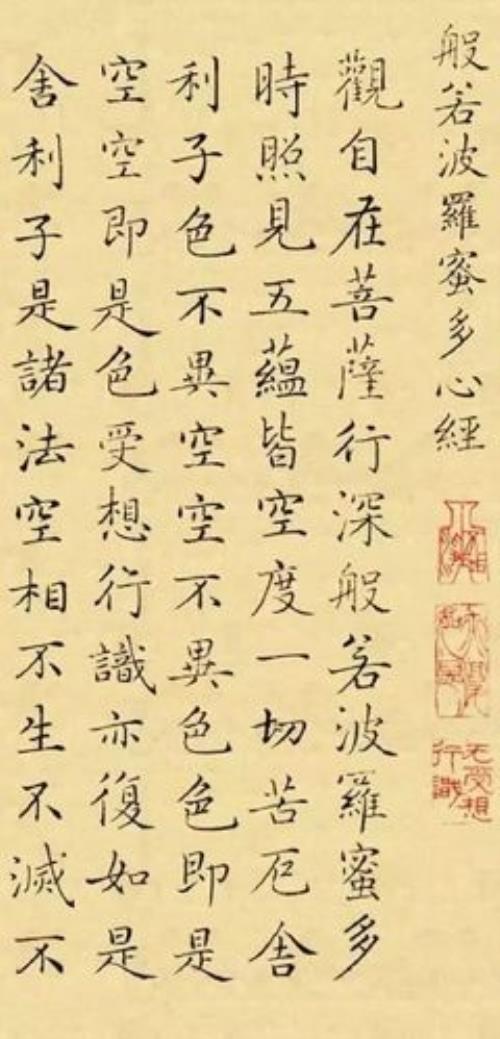 般若波羅蜜多心經
無受想
行識
觀自在菩薩行深般若波羅蜜多
時照見五蘊皆空度一切苦厄舍
利子色不異空空不異色色即是
空空即是色受想行識亦復如是
舍利子是諸法空相不生不滅不